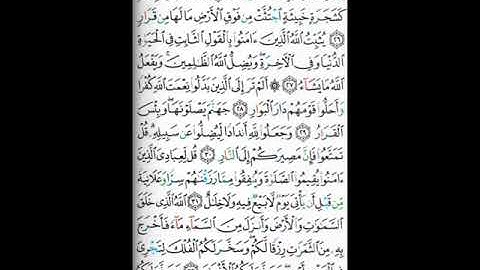 كَشَجَرَةٍ خَبِيثَةٍ ٱجۡتُثَّتۡ مِن فَوۡقِ ٱلۡأَرۡضِ مَا لَهَا مِن قَرَارٖ
٢٦ يُثَبِّتُ ٱللَّهُ ٱلَّذِينَ ءَامَنُواْ بِٱلۡقَوۡلِ ٱلثَّابِتِ فِي ٱلۡحَيَوٰةِ
ٱلدُّنۡيَا وَفِي ٱلۡأٓخِرَةِۖ وَيُضِلُّ ٱللَّهُ ٱلظَّٰلِمِينَۚ وَيَفۡعَلُ
ٱللَّهُ مَا يَشَآءُ ٢٧ ۞ أَلَمۡ تَرَ إِلَى ٱلَّذِينَ بَدَّلُواْ نِعۡمَتَ ٱللَّهِ كُفۡرٗا
وَأَحَلُّواْ قَوۡمَهُمۡ دَارَ ٱلۡبَوَارِ ٢٨ جَهَنَّمَ يَصۡلَوۡنَهَاۖ وَبِئۡسَ
ٱلۡقَرَارُ ٢٩ وَجَعَلُواْ لِلَّهِ أَندَادٗا لِّيُضِلُّواْ عَن سَبِيلِهِۦۗ قُلۡ
تَمَتَّعُواْ فَإِنَّ مَصِيرَكُمۡ إِلَى ٱلنَّارِ ٣٠ قُل لِّعِبَادِيَ ٱلَّذِينَ
ءَامَنُواْ يُقِيمُواْ ٱلصَّلَوٰةَ وَيُنفِقُواْ مِمَّا رَزَقۡنَٰهُمۡ سِرّٗا وَعَلَانِيَةٗ
مِّن قَبۡلِ أَن يَأۡتِيَ يَوۡمٞ لَّا بَيۡعٞ فِيهِ وَلَا خِلَٰلٌ ٣١ ٱللَّهُ ٱلَّذِي خَلَقَ
ٱلسَّمَٰوَٰتِ وَٱلۡأَرۡضَ وَأَنزَلَ مِنَ ٱلسَّمَآءِ مَآءٗ فَأَخۡرَجَ
بِهِۦ مِنَ ٱلثَّمَرَٰتِ رِزۡقٗا لَّكُمۡۖ وَسَخَّرَ لَكُمُ ٱلۡفُلۡكَ لِتَجۡرِيَ